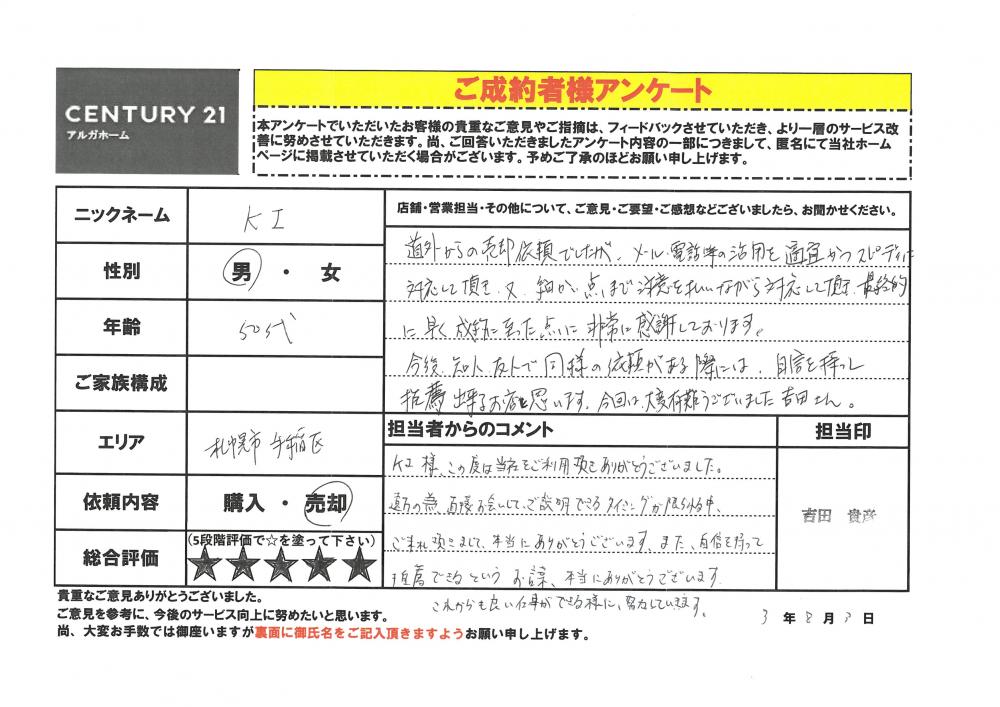 CENTURY 21
アルガホーム
ご成約者様アンケート
本アンケートでいただいたお客様の貴重なご意見やご指摘は、フィードバックさせていただき、より一層のサービス改
善に努めさせていただきます。尚、ご回答いただきましたアンケート内容の一部につきまして、匿名にて当社ホーム
ページに掲載させていただく場合がございます。予めご了承のほどお願い申し上げます。
ニックネーム
KI
性別
男・女
年齢
50代
ご家族構成
エリア
札幌市 手稲区
依頼内容
購入・売却
総合評価
(5段階評価で☆を塗って下さい)
★★★★★
店舗・営業担当・その他について、ご意見・ご要望・ご感想などございましたら、お聞かせください。
道外からの売却依頼でしたが、メール・電話等の活用を適宜かつスピーディに
対応して頂き、又、細かい点まで注意を払いながら対応して頂き、最終的
に早く成約に至った点に非常に感謝しております。
今後、知人、友人で同様の依頼がある際には、自信を持っし
推薦出来るお店と思います。今回は、大変有難うございました吉田さん。
担当者からのコメント
KI様、この度は当社をご利用頂きありがとうございました。
遠方の為、直接お会いして、ご説明できるタイミングが限られる中、
ご来札頂きまして、本当にありがとうございます。また、自信を持って
推薦できるという お言葉、本当にありがとうございます。
これからも良い仕事ができる様に、努力していきます。
担当印
吉田 貴彦
貴重なご意見ありがとうございました。
ご意見を参考に、今後のサービス向上に努めたいと思います。
尚、大変お手数では御座いますが裏面に御氏名をご記入頂きますようお願い申し上げます。
3年8月3日